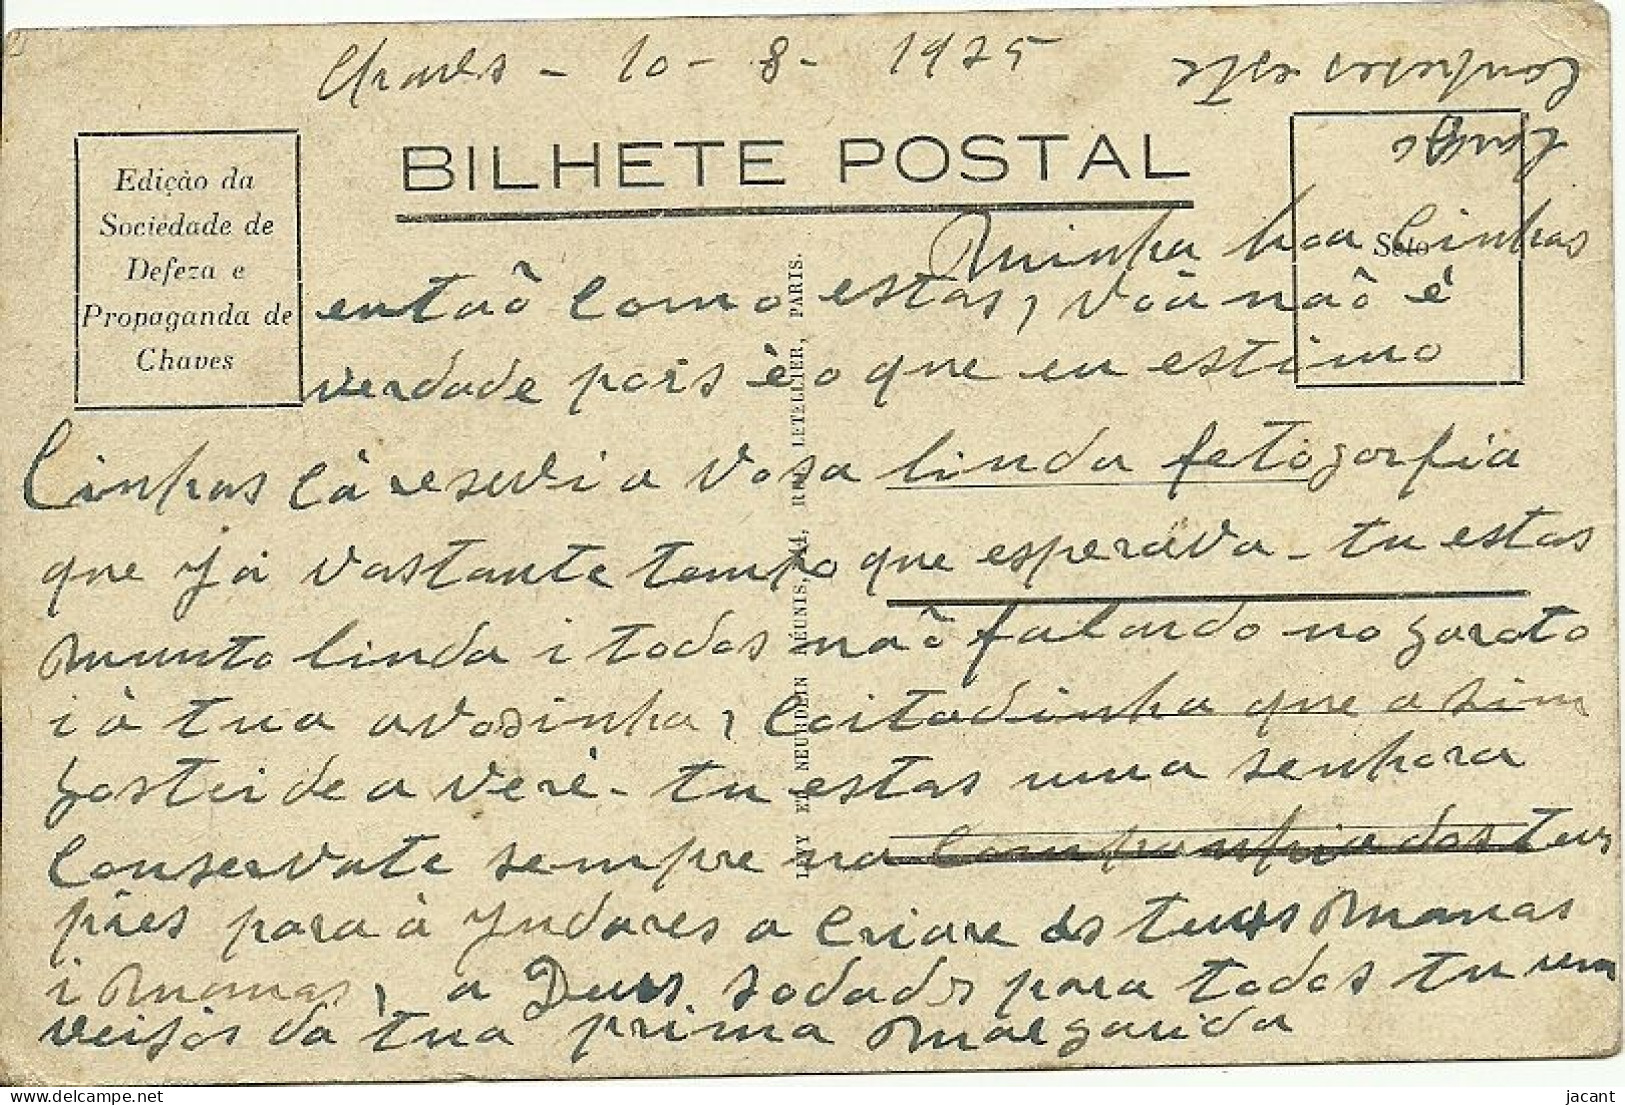 Chaves - 10 - 8 - 1925
BILHETE POSTAL
Edição da
Sociedade de
Defeza e
Propaganda de
Chaves
Selo
Minha boa Linhas
então como estas, vôa não é
verdade pois é o que eu estimo
Linhas cá resevi a vosa linda fetogorfia
que já vastante tempo que esperáva - tu estas
munto linda i todos não falando no garoto
i á tua avósinha, Coitadinha que a sim
gostei de a veré - tu estas uma senhora
Conservate sempre na Companhia dos teus
pâes para á Judares a Criare os teus manas
i manas, a Deus. sodades para todos tu um
veijos da tua prima Malgarida
LEVY ET NEURDEIN RÉUNIS, 44, RUE LETELLIER, PARIS.
jacant